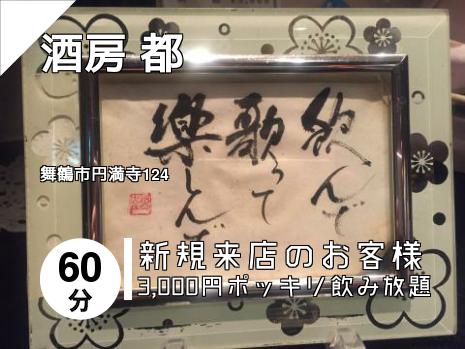 酒房 都
飲んで
歌って
楽しんで
舞鶴市円満寺124
60
分
新規来店のお客様
3,000円ポッキリ飲み放題